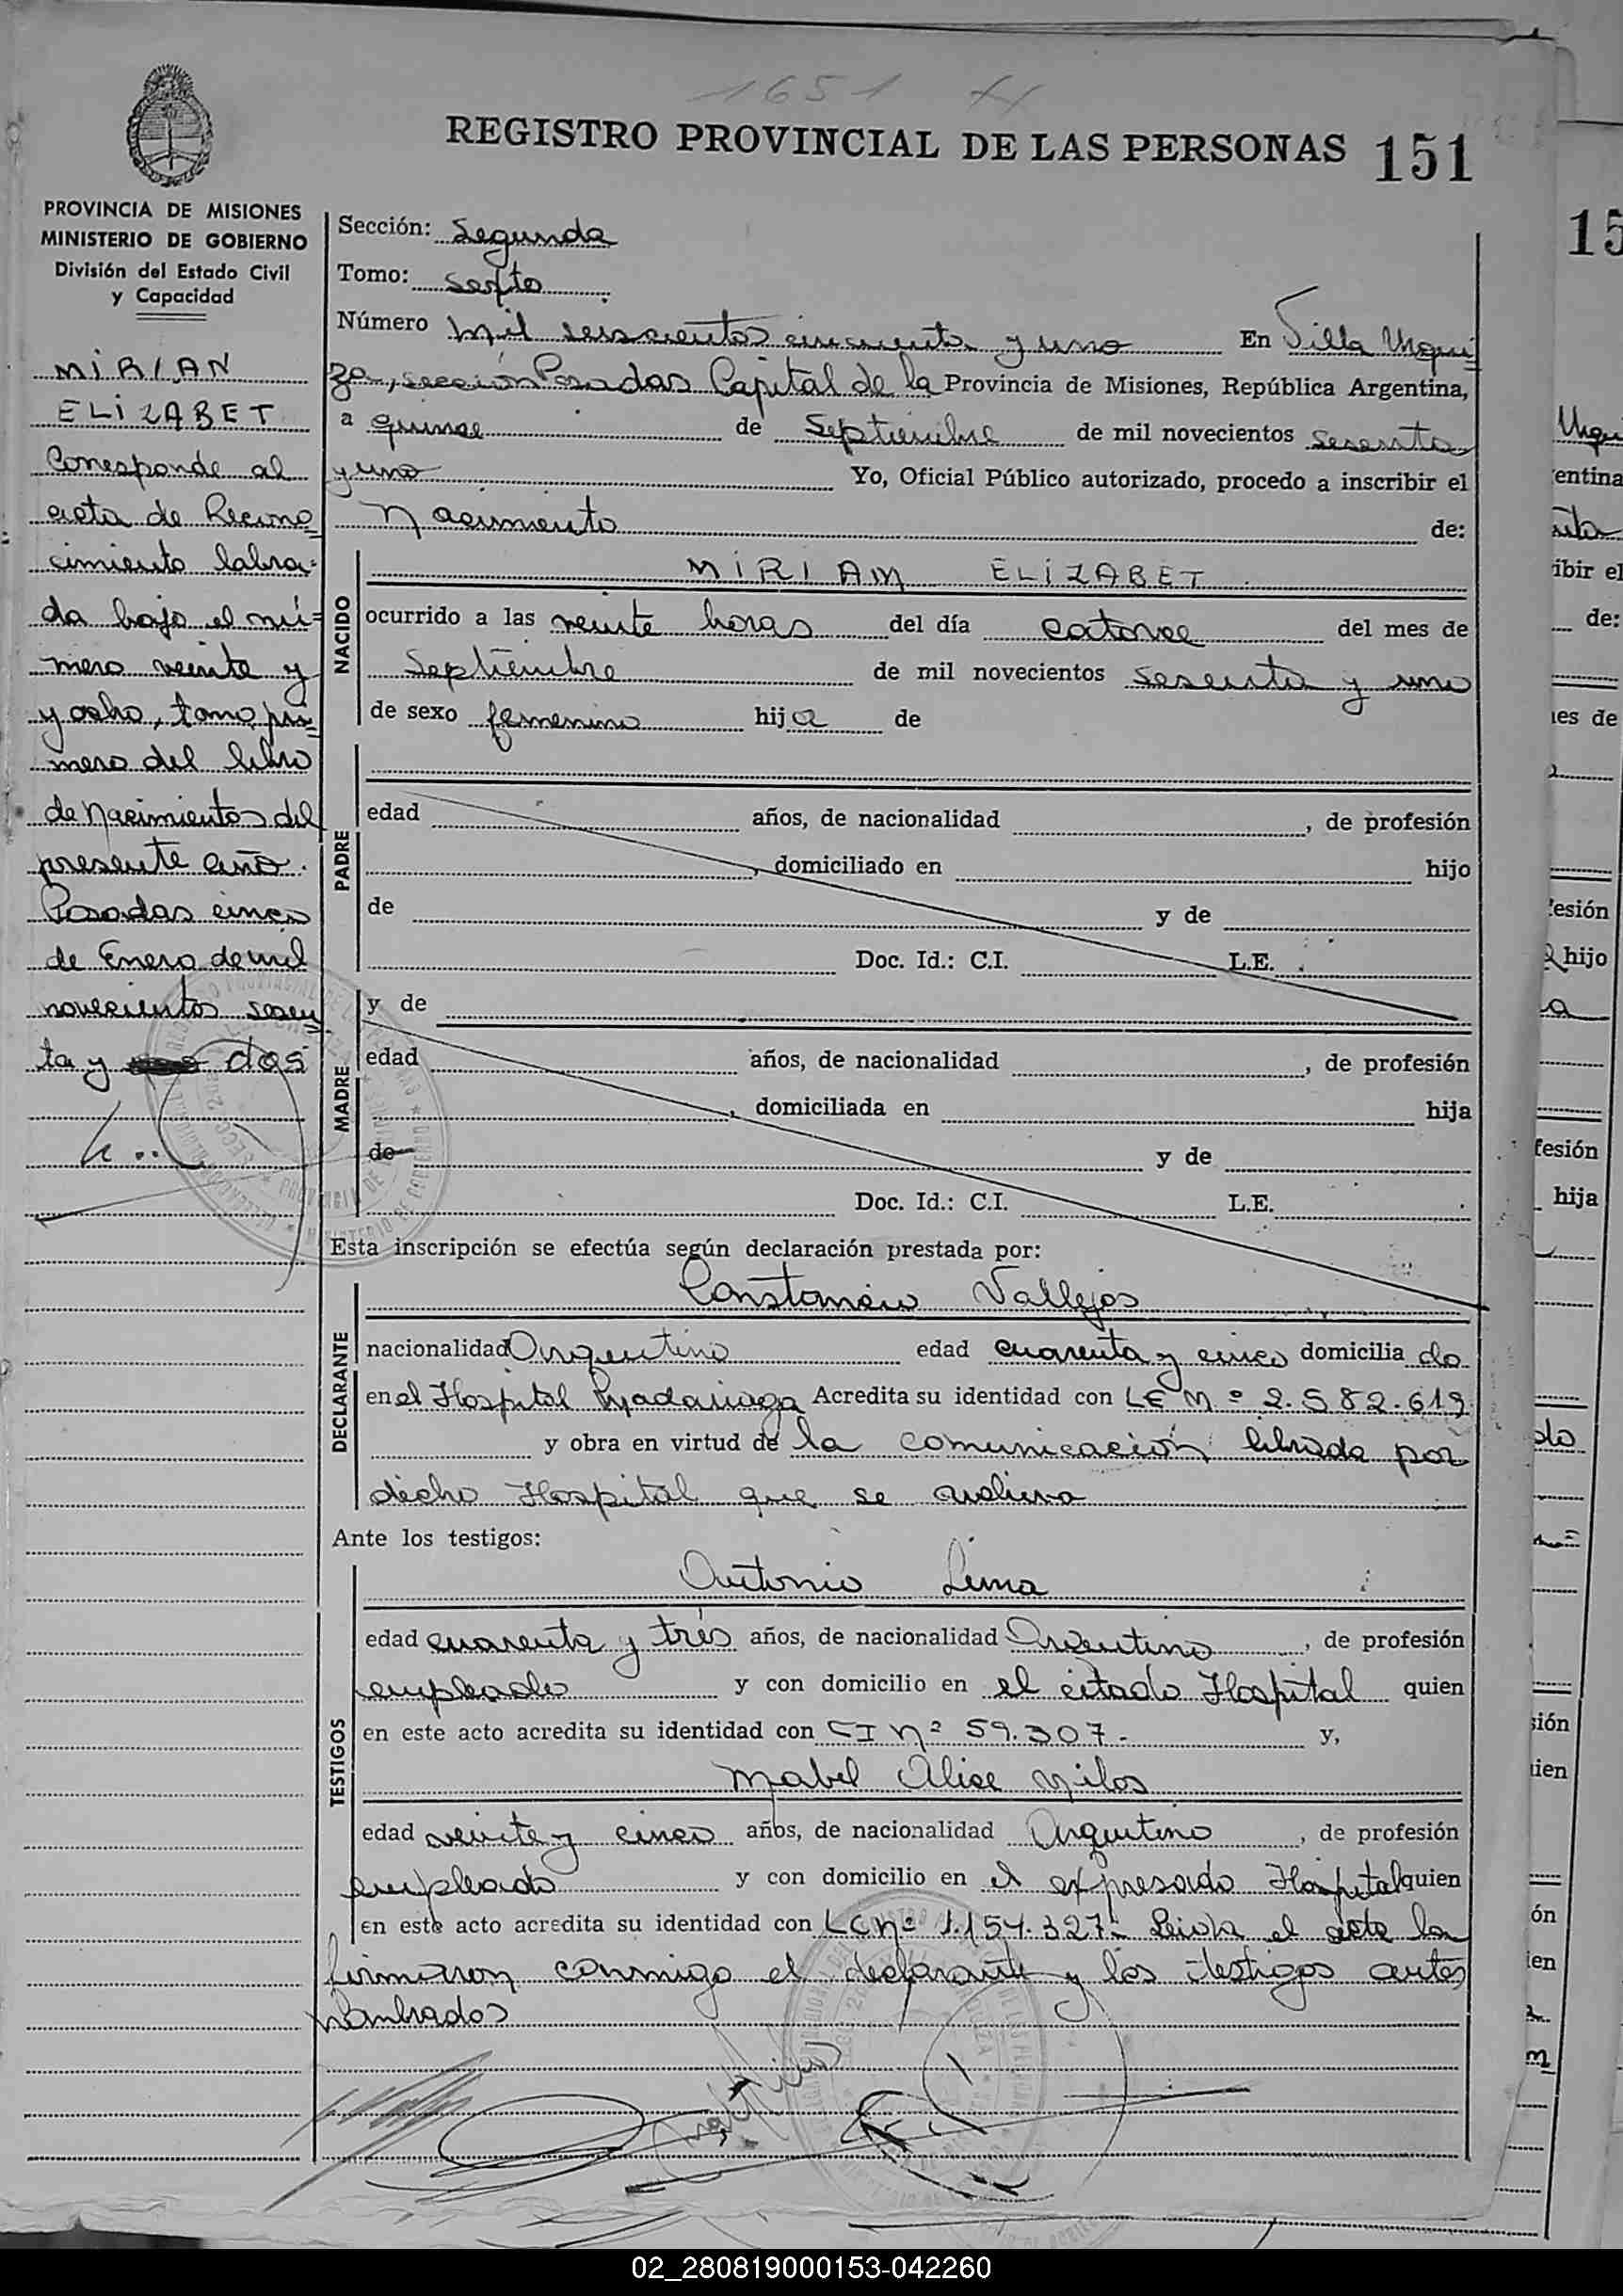 1651
REGISTRO PROVINCIAL DE LAS PERSONAS 151
PROVINCIA DE MISIONES
MINISTERIO DE GOBIERNO
División del Estado Civil
y Capacidad
MIRIAN
ELIZABET
Corresponde al
acta de Recono
cimiento labra-
da bajo el nú-
mero veinte y
y ocho, tomo pri
mero del libro
de Nacimientos del
presente año.
Posadas cinco
de Enero de mil
novecientos sesen
ta y dos
Sección: Segunda
Tomo: Sexto
Número Mil seiscientos cincuenta y uno En Villa Urqui
za, sección Posadas Capital de la Provincia de Misiones, República Argentina,
a quince de Septiembre de mil novecientos Sesenta
y uno Yo, Oficial Público autorizado, procedo a inscribir el
Nacimiento de:
NACIDO
MIRIAM ELIZABET
ocurrido a las veinte horas del día catorce del mes de
Septiembre de mil novecientos sesenta y uno
de sexo femenino hija de
PADRE
edad años, de nacionalidad , de profesión
, domiciliado en hijo
de y de
Doc. Id.: C.I. L.E.
MADRE
y de
edad años, de nacionalidad , de profesión
, domiciliada en hija
de y de
Doc. Id.: C.I. L.E.
Esta inscripción se efectúa según declaración prestada por:
DECLARANTE
Constancio Vallejos
nacionalidad Argentino edad cuarenta y cinco domicilia do
en el Hospital Madariaga Acredita su identidad con LE Nº 2.582.619
y obra en virtud de la comunicación librada por
dicho Hospital que se archiva
Ante los testigos:
TESTIGOS
Antonio Lima
edad cuarenta y trés años, de nacionalidad Argentino , de profesión
empleado y con domicilio en el citado Hospital quien
en este acto acredita su identidad con CI Nº 59.307.- y,
Mabel Alice
edad veinte y cinco años, de nacionalidad Argentino , de profesión
empleado y con domicilio en el expresado Hospital quien
en este acto acredita su identidad con LC nº 1.154.327.- Leida el acta la
firmaron conmigo el declarante y los testigos antes
nombrados
02_280819000153-042260